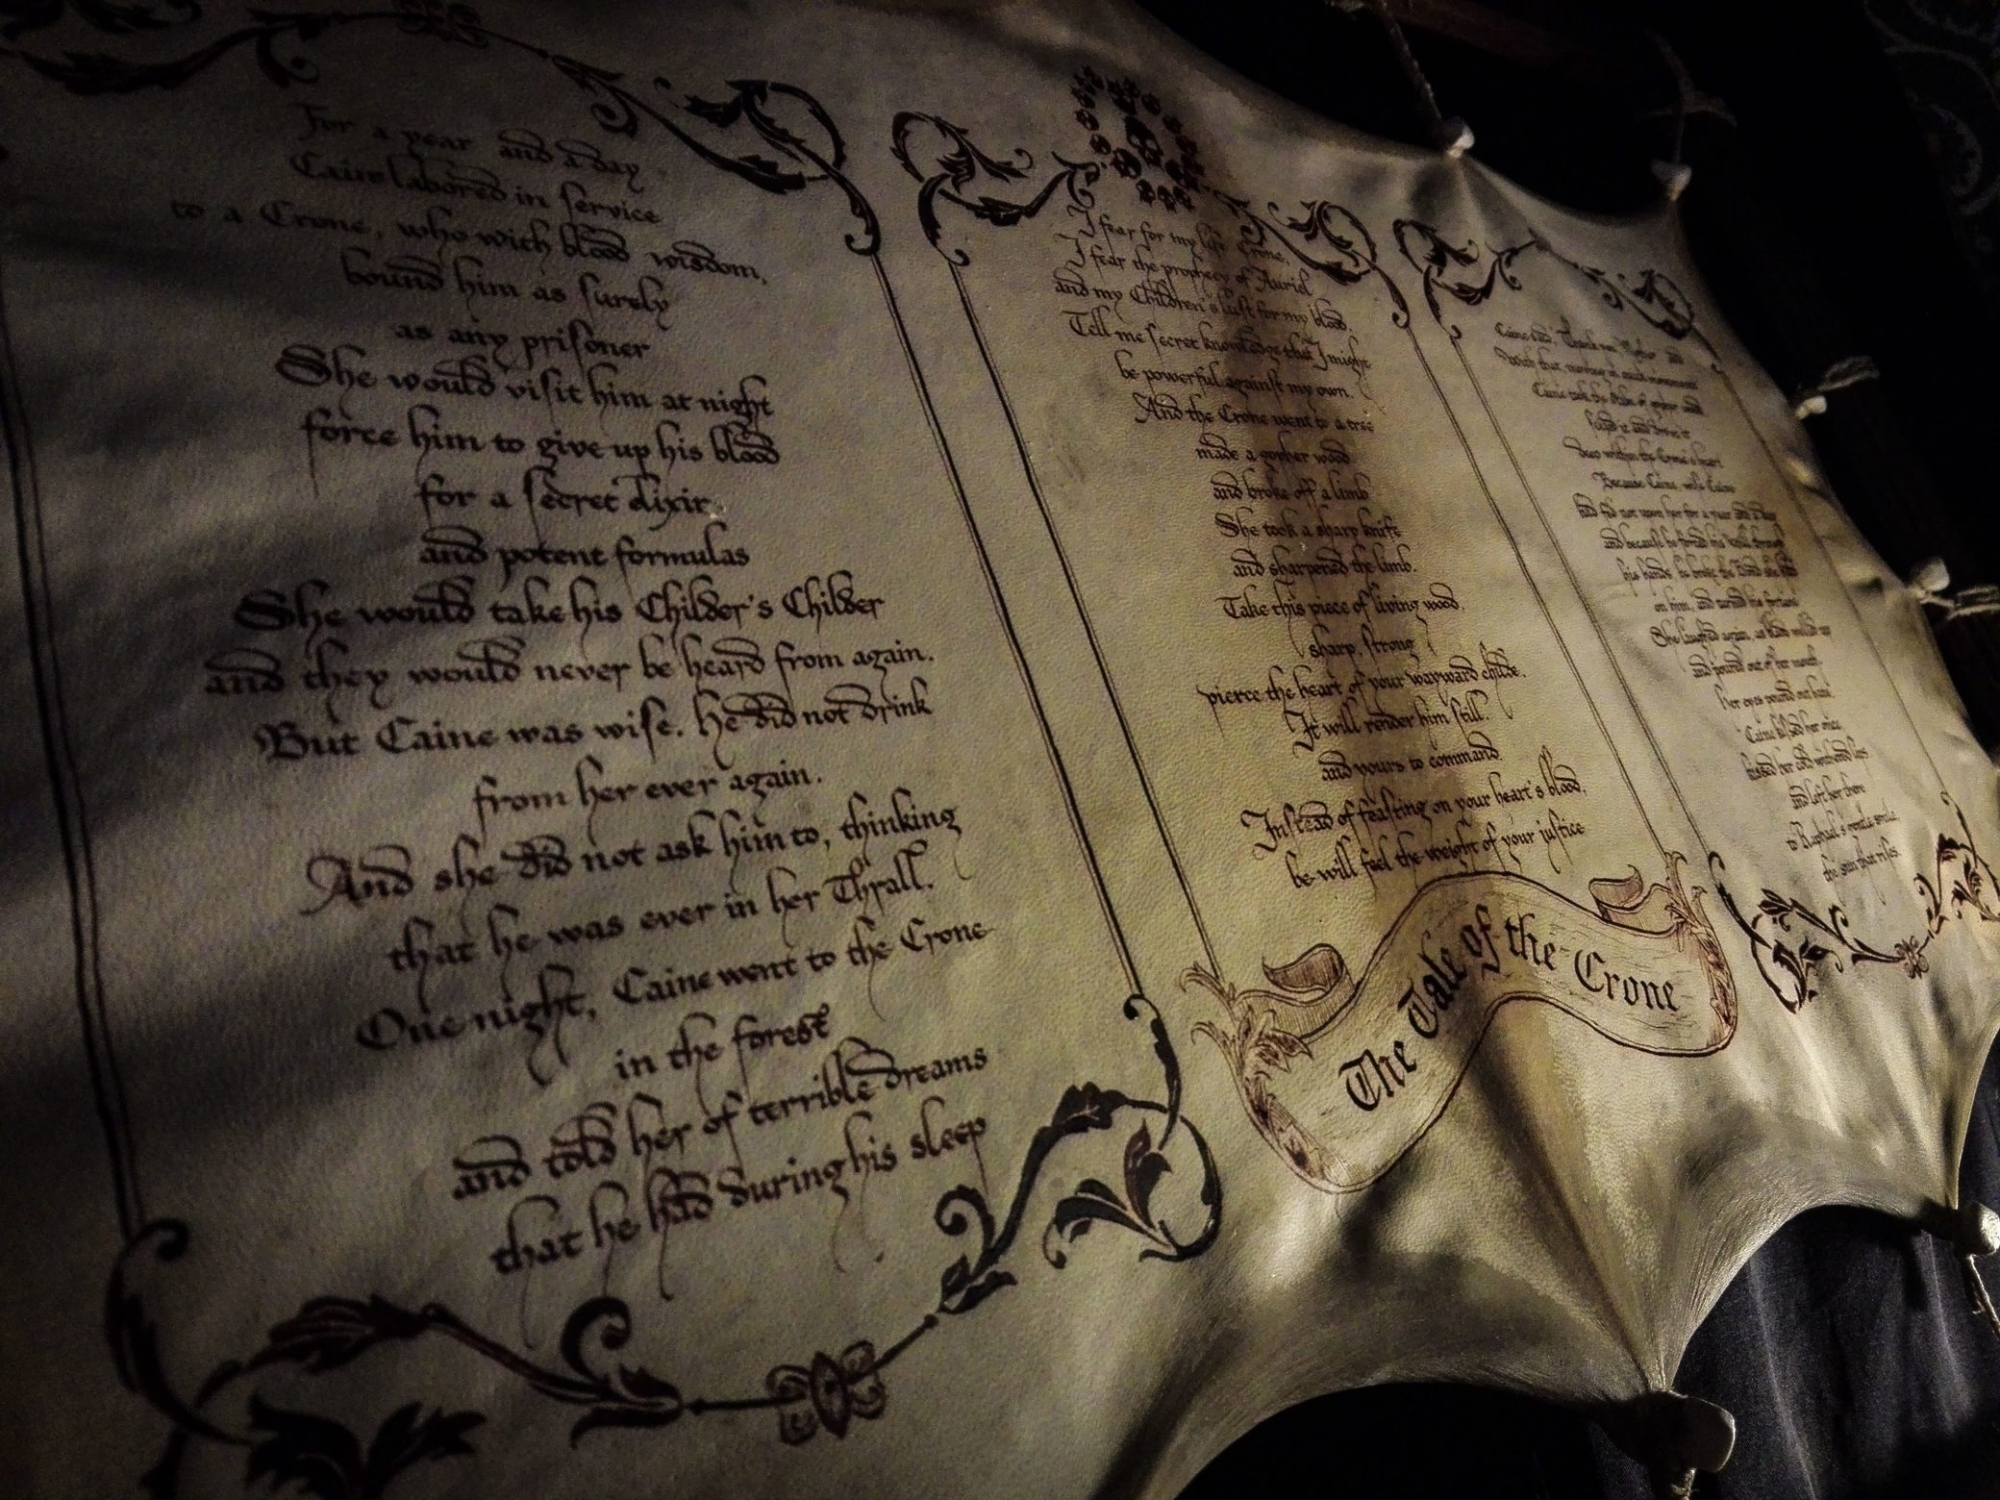 For a year and a day
Caine labored in service
to a Crone, who with blood wisdom,
bound him as surely
as any prisoner
She would visit him at night
force him to give up his blood
for a secret elixir
and potent formulas
She would take his Childer's Childer
and they would never be heard from again.
But Caine was wise. he did not drink
from her ever again.
And she did not ask him to, thinking
that he was ever in her Thrall.
One night, Caine went to the Crone
in the forest
and told her of terrible dreams
that he had during his sleep
I fear for my life Crone,
I fear the prophecy of Auriel
and my Children's lust for my blood.
Tell me secret knowledge that I might
be powerful against my own.
And the Crone went to a tree
made a gopher wood
and broke off a limb
She took a sharp knife
and sharpened the limb.
Take this piece of living wood,
sharp, strong
pierce the heart of your wayward childe.
It will render him still.
and yours to command.
Instead of feasting on your heart's blood,
be will feel the weight of your justice
The Tale of the Crone
Caine said, Thank you Mother and
With that, moving in
Caine took the stake of gopher
and drove it
deep within the Crone's heart
Because Caine, wise Caine
had fed not upon her for a year and a day
and because he forced his Will through
his hands he broke the Bond she had
on him, and turned his fortune
She laughed again, as blood welled up
and poured out of her mouth,
her eyes poured out hate
Caine kissed her once
kissed her cold withered lips
and left her there
to Raphael's gentle smile
the sun that rises.